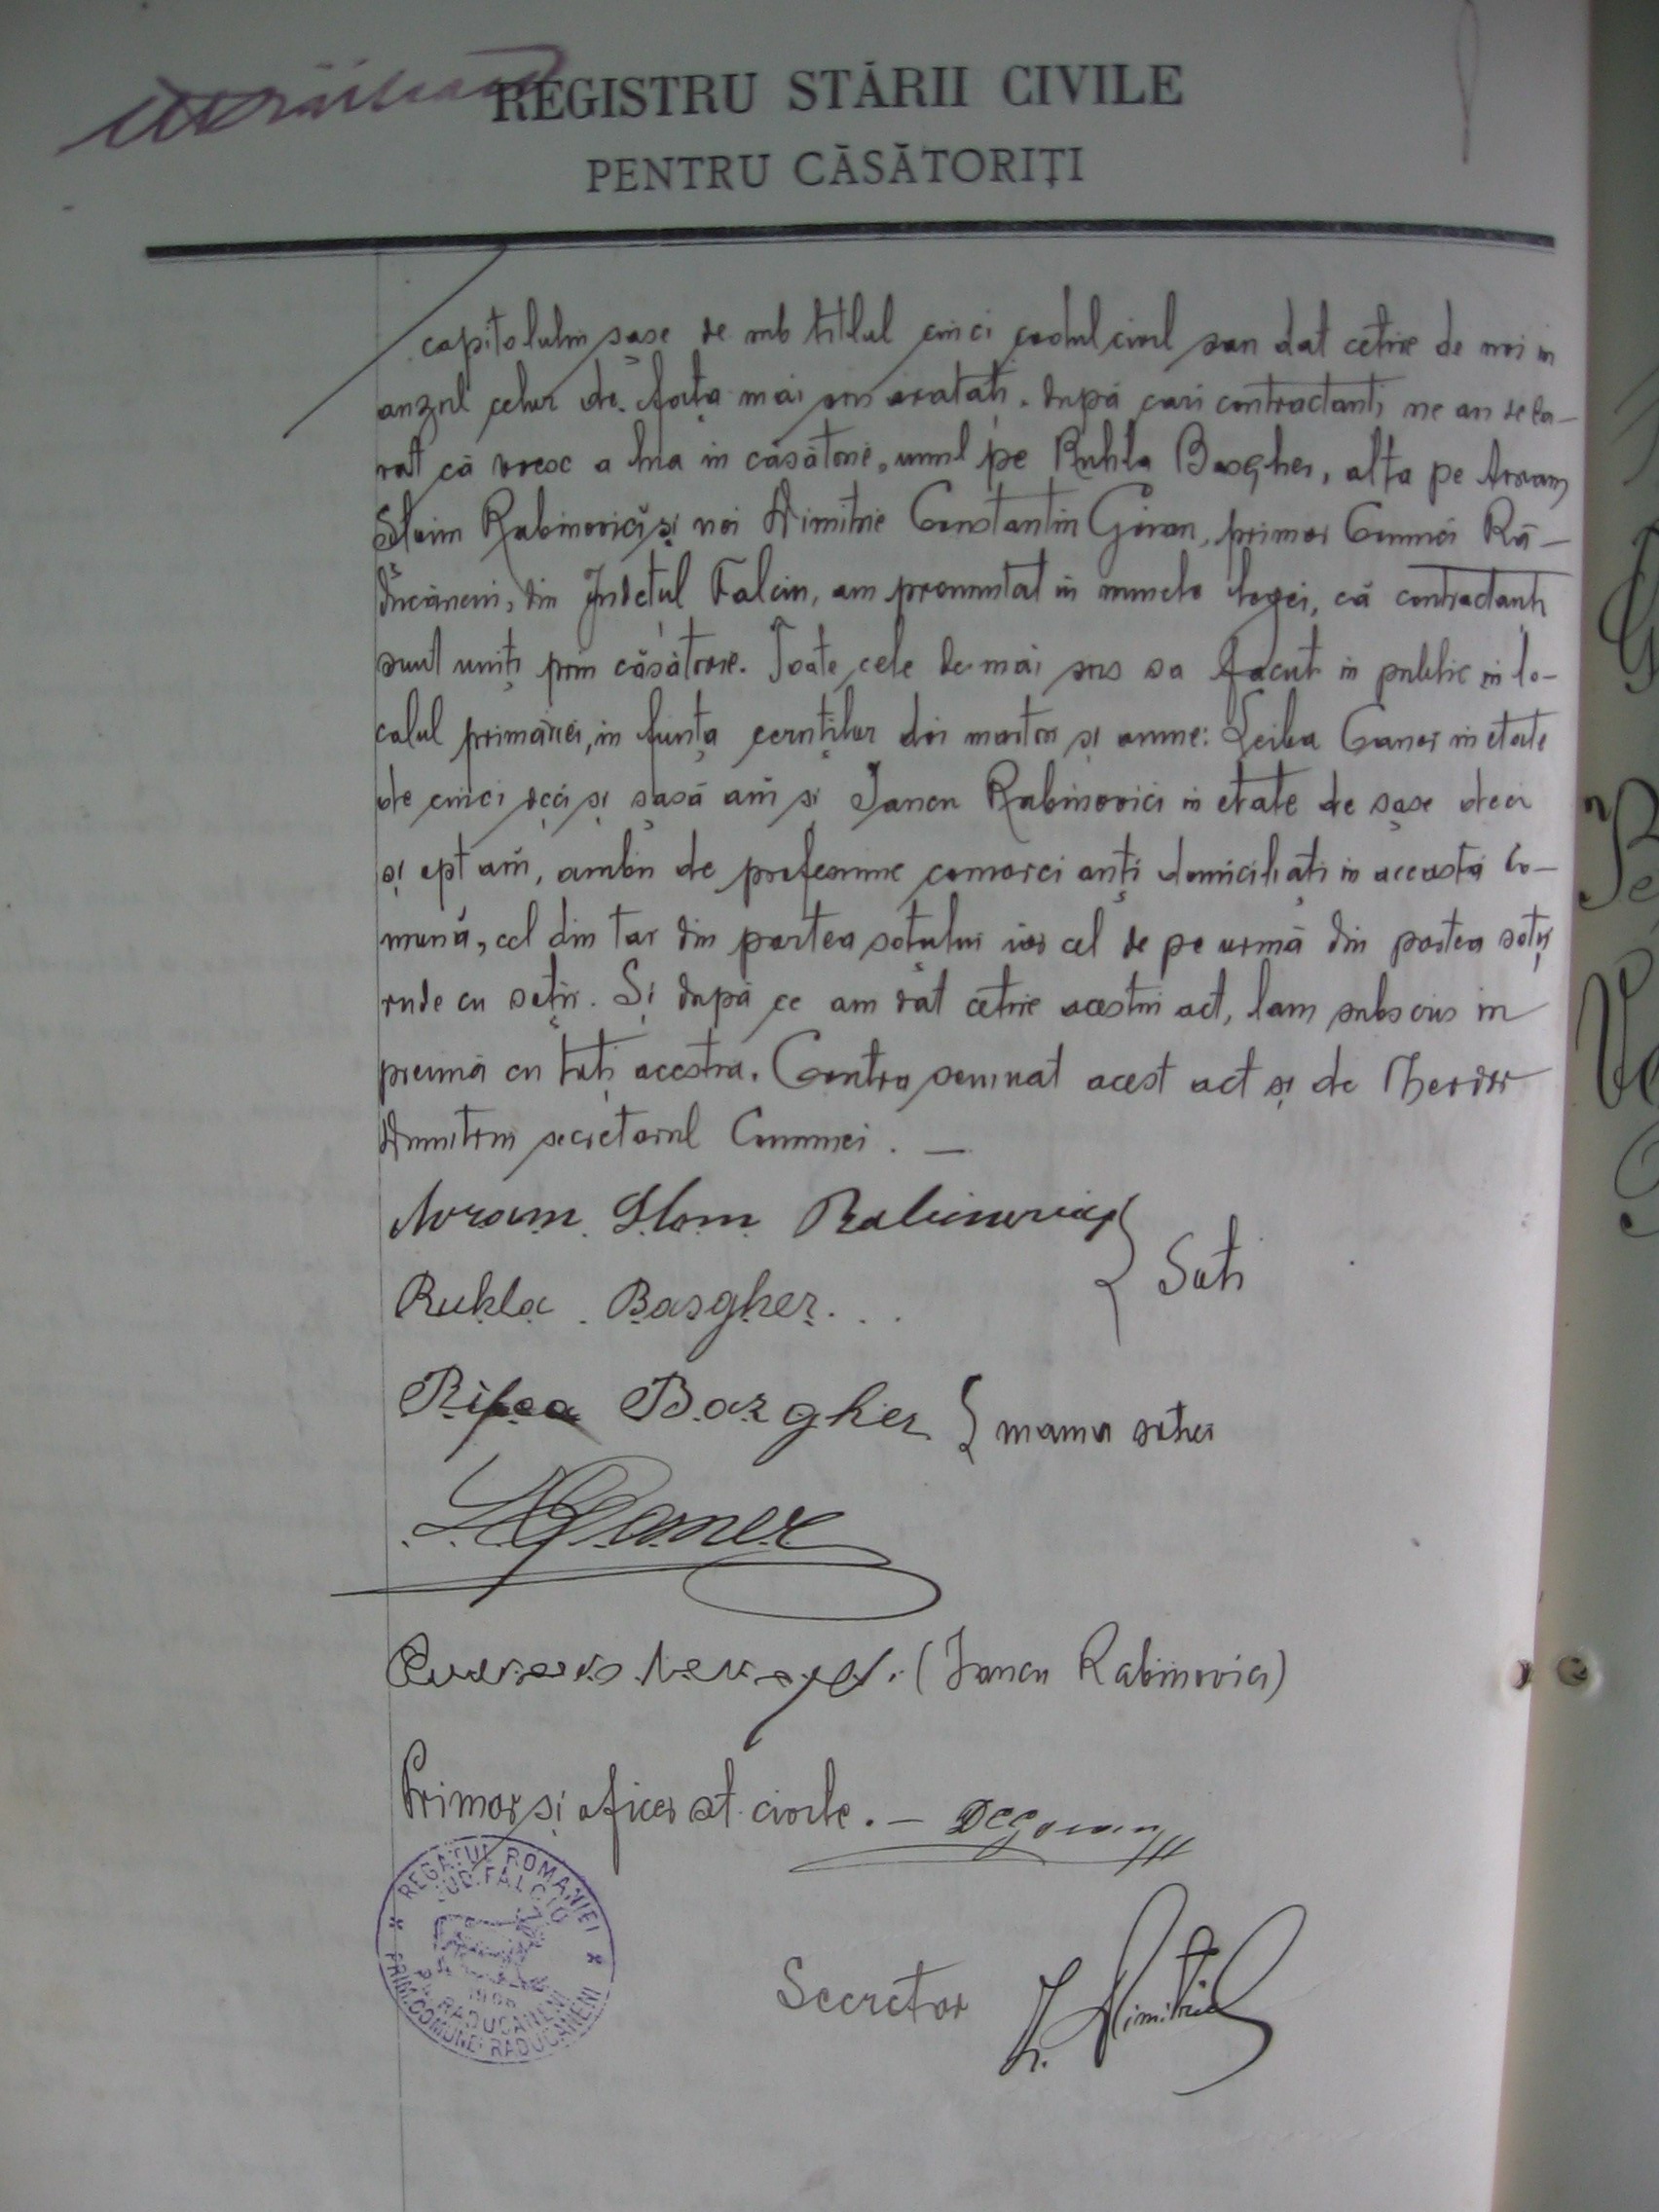 REGISTRU STĂRII CIVILE
PENTRU CĂSĂTORIȚI
capitolului șase de sub titlul cinci codul civil sau dat cetire de noi in
auzul celor de fața mai sus aratați. după cari contractanti ne au decla-
rat că voesc a lua in căsătorie, unul pe Ruhla Basgher, alta pe Avram
Sloim Rabinovici și noi Dimitrie Constantin Goran, primar Comunei Ră-
ducăneni, din Județul Falciu, am pronuntat in numele legei, că contractanti
sunt uniți prin căsătorie. Toate cele de mai sus sa facut in public in lo-
calul primăriei, in ființa cerutților doi martori și anume: Leiba Ganer in etate
de cinci deci și șasă ani și Iancu Rabinovici in etate de șase deci
și opt ani, ambii de profesiune comercianți domiciliați in aceasta Co-
mună, cel din tai din partea soțului iar cel de pe urmă din partea soției
rude cu soții. Și după ce am dat cetire acestui act, lam subscris in
preună cu toți aceștia. Contra semnat acest act și de
Dumitriu secretarul Comunei. —
Avram Sloim Rabinovici
Soti
Ruhla Basgher.
Rifca Bazgher mama sotiei
L. Ganer
(Iancu Rabinovici)
Primar și oficer st. civile. — DCGoran
REGATUL ROMANIEI
JUD. FALCIU
PRIM. COMUNEI RADUCANENI
Secretar Dimitriu